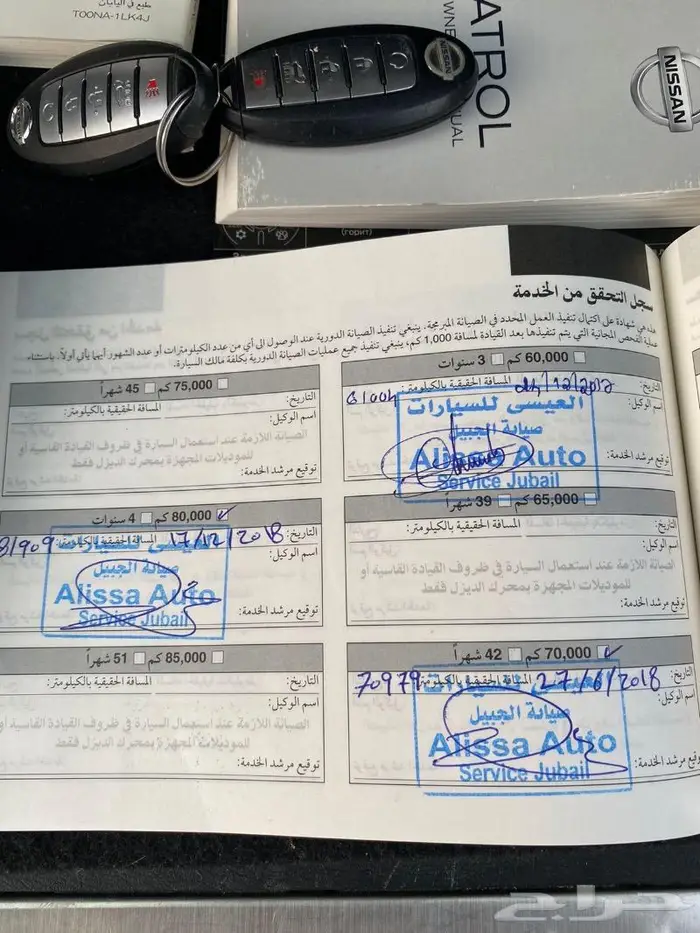 طبع في اليابان
TOONA-1LK4J
NISSAN
NISSAN
PATROL
OWNER'S MANUAL
NISSAN
سجل التحقق من الخدمة
هذه هي شهادة على اكتمال تنفيذ العمل المحدد في الصيانة المبرمجة. ينبغي تنفيذ الصيانة الدورية عند الوصول الى أي من عدد الكيلومترات أو عدد الشهور أيهما يأتي أولاً. باستثناء
عملية الفحص المجانية التي يتم تنفيذها بعد القيادة لمسافة 1,000 كم، ينبغي تنفيذ جميع عمليات الصيانة الدورية بكلفة مالك السيارة.
60,000 كم 3 سنوات
التاريخ: 12/2017 المسافة الحقيقية بالكيلومتر:
اسم الوكيل:
العيسى للسيارات
صيانة الجبيل
Alissa Auto
Service Jubail
توقيع مرشد الخدمة:
65,000 كم 39 شهراً
التاريخ: المسافة الحقيقية بالكيلومتر:
اسم الوكيل:
الصيانة اللازمة عند استعمال السيارة في ظروف القيادة القاسية أو
للموديلات المجهزة بمحرك الديزل فقط
توقيع مرشد الخدمة:
70,000 كم 42 شهراً
التاريخ: 27/6/2018 المسافة الحقيقية بالكيلومتر: 70979
اسم الوكيل:
العيسى للسيارات
صيانة الجبيل
Alissa Auto
Service Jubail
توقيع مرشد الخدمة:
75,000 كم 45 شهراً
التاريخ: المسافة الحقيقية بالكيلومتر:
اسم الوكيل:
الصيانة اللازمة عند استعمال السيارة في ظروف القيادة القاسية أو
للموديلات المجهزة بمحرك الديزل فقط
توقيع مرشد الخدمة:
80,000 كم 4 سنوات
التاريخ: 17/12/2018 المسافة الحقيقية بالكيلومتر: 81909
اسم الوكيل:
العيسى للسيارات
صيانة الجبيل
Alissa Auto
Service Jubail
توقيع مرشد الخدمة:
85,000 كم 51 شهراً
التاريخ: المسافة الحقيقية بالكيلومتر:
اسم الوكيل:
الصيانة اللازمة عند استعمال السيارة في ظروف القيادة القاسية أو
للموديلات المجهزة بمحرك الديزل فقط
توقيع مرشد الخدمة:
حراج